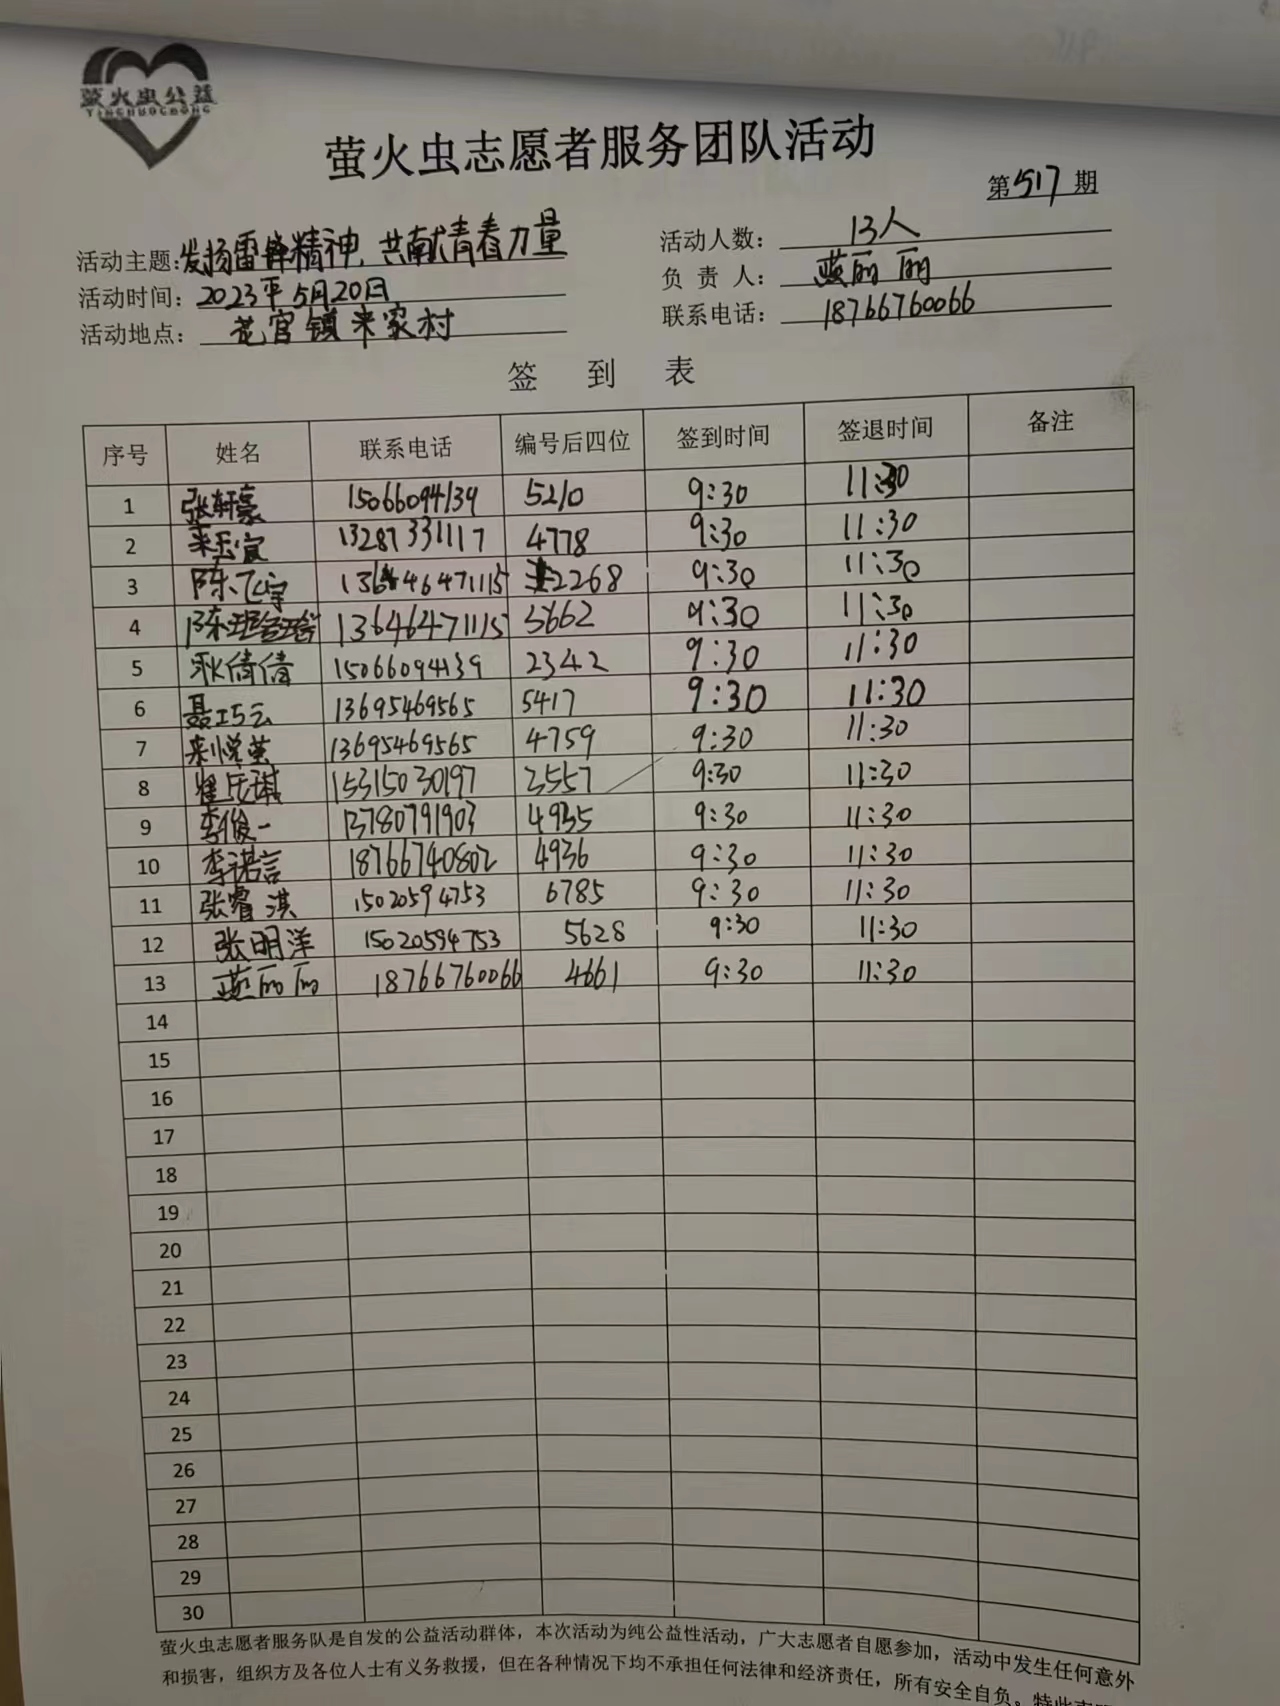 萤火虫公益
YINGHUOCHONG
萤火虫志愿者服务团队活动
第517期
活动主题:发扬雷锋精神,共献青春力量 活动人数: 13人
活动时间: 2023年5月20日 负责人: 蓝丽丽
活动地点: 花官镇来家村 联系电话: 18766760066
签到表
序号 姓名 联系电话 编号后四位 签到时间 签退时间 备注
1 张轩豪 15066094139 5210 9:30 11:30
2 来玉宸 13287331117 4778 9:30 11:30
3 陈飞宇 13646471115 2268 9:30 11:30
4 陈 13646471115 3662 9:30 11:30
5 耿倩倩 15066094139 2342 9:30 11:30
6 聂巧云 13695469565 5417 9:30 11:30
7 来悦萤 13695469565 4759 9:30 11:30
8 15315030197 3557 9:30 11:30
9 李俊一 13780791903 4935 9:30 11:30
10 李诺言 18766740802 4936 9:30 11:30
11 张睿淇 15020594753 6785 9:30 11:30
12 张明洋 15020594753 5628 9:30 11:30
13 蓝丽丽 18766760066 4661 9:30 11:30
14
15
16
17
18
19
20
21
22
23
24
25
26
27
28
29
30
萤火虫志愿者服务队是自发的公益活动群体，本次活动为纯公益性活动，广大志愿者自愿参加，活动中发生任何意外
和损害，组织方及各位人士有义务救援，但在各种情况下均不承担任何法律和经济责任，所有安全自负。特此